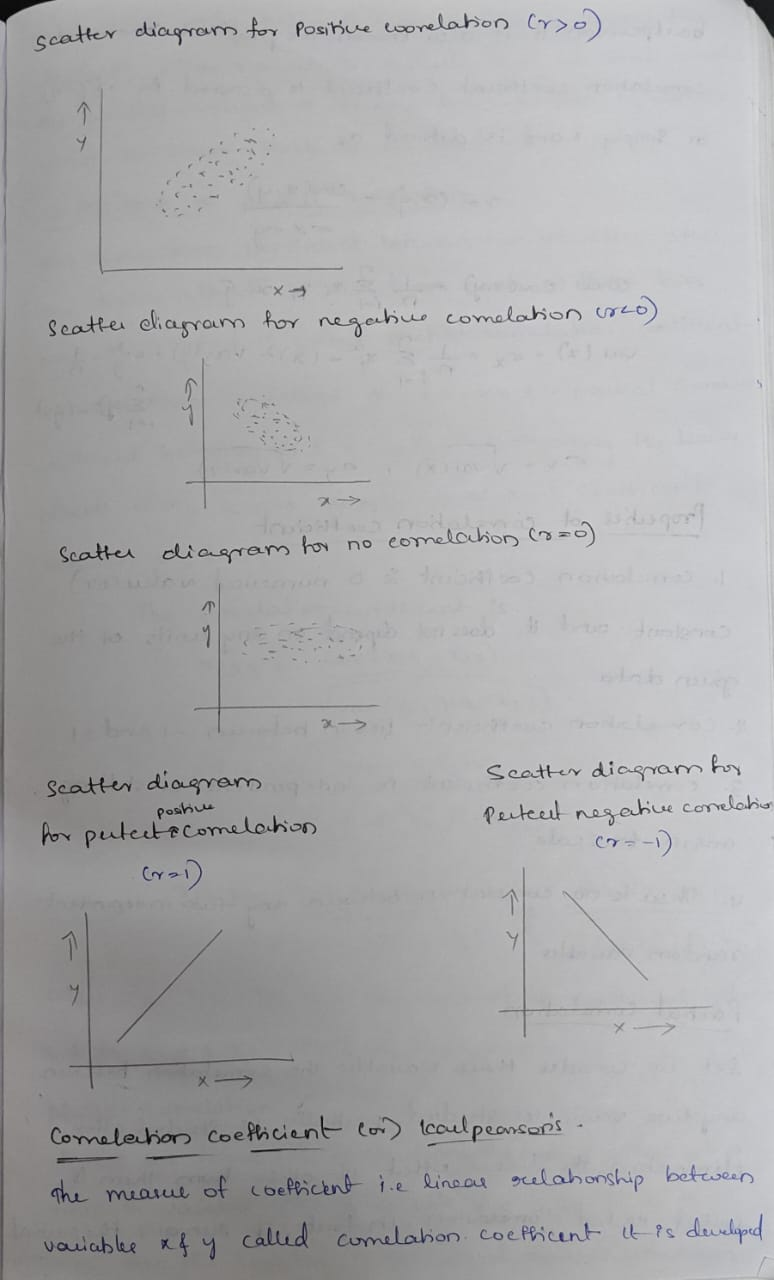 Scatter diagram for Positive correlation (r>0)
↑
y
x →
Scatter diagram for negative correlation (r<0)
↑
y
x →
Scatter diagram for no correlation (r=0)
↑
y
x →
Scatter diagram
for perfect positive correlation
(r=1)
↑
y
x →
Scatter diagram for
Perfect negative correlation
(r=-1)
↑
y
x →
Correlation coefficient (or) Karlpearson's.
The measure of coefficient i.e linear relationship between
variables x & y called correlation coefficient it is developed